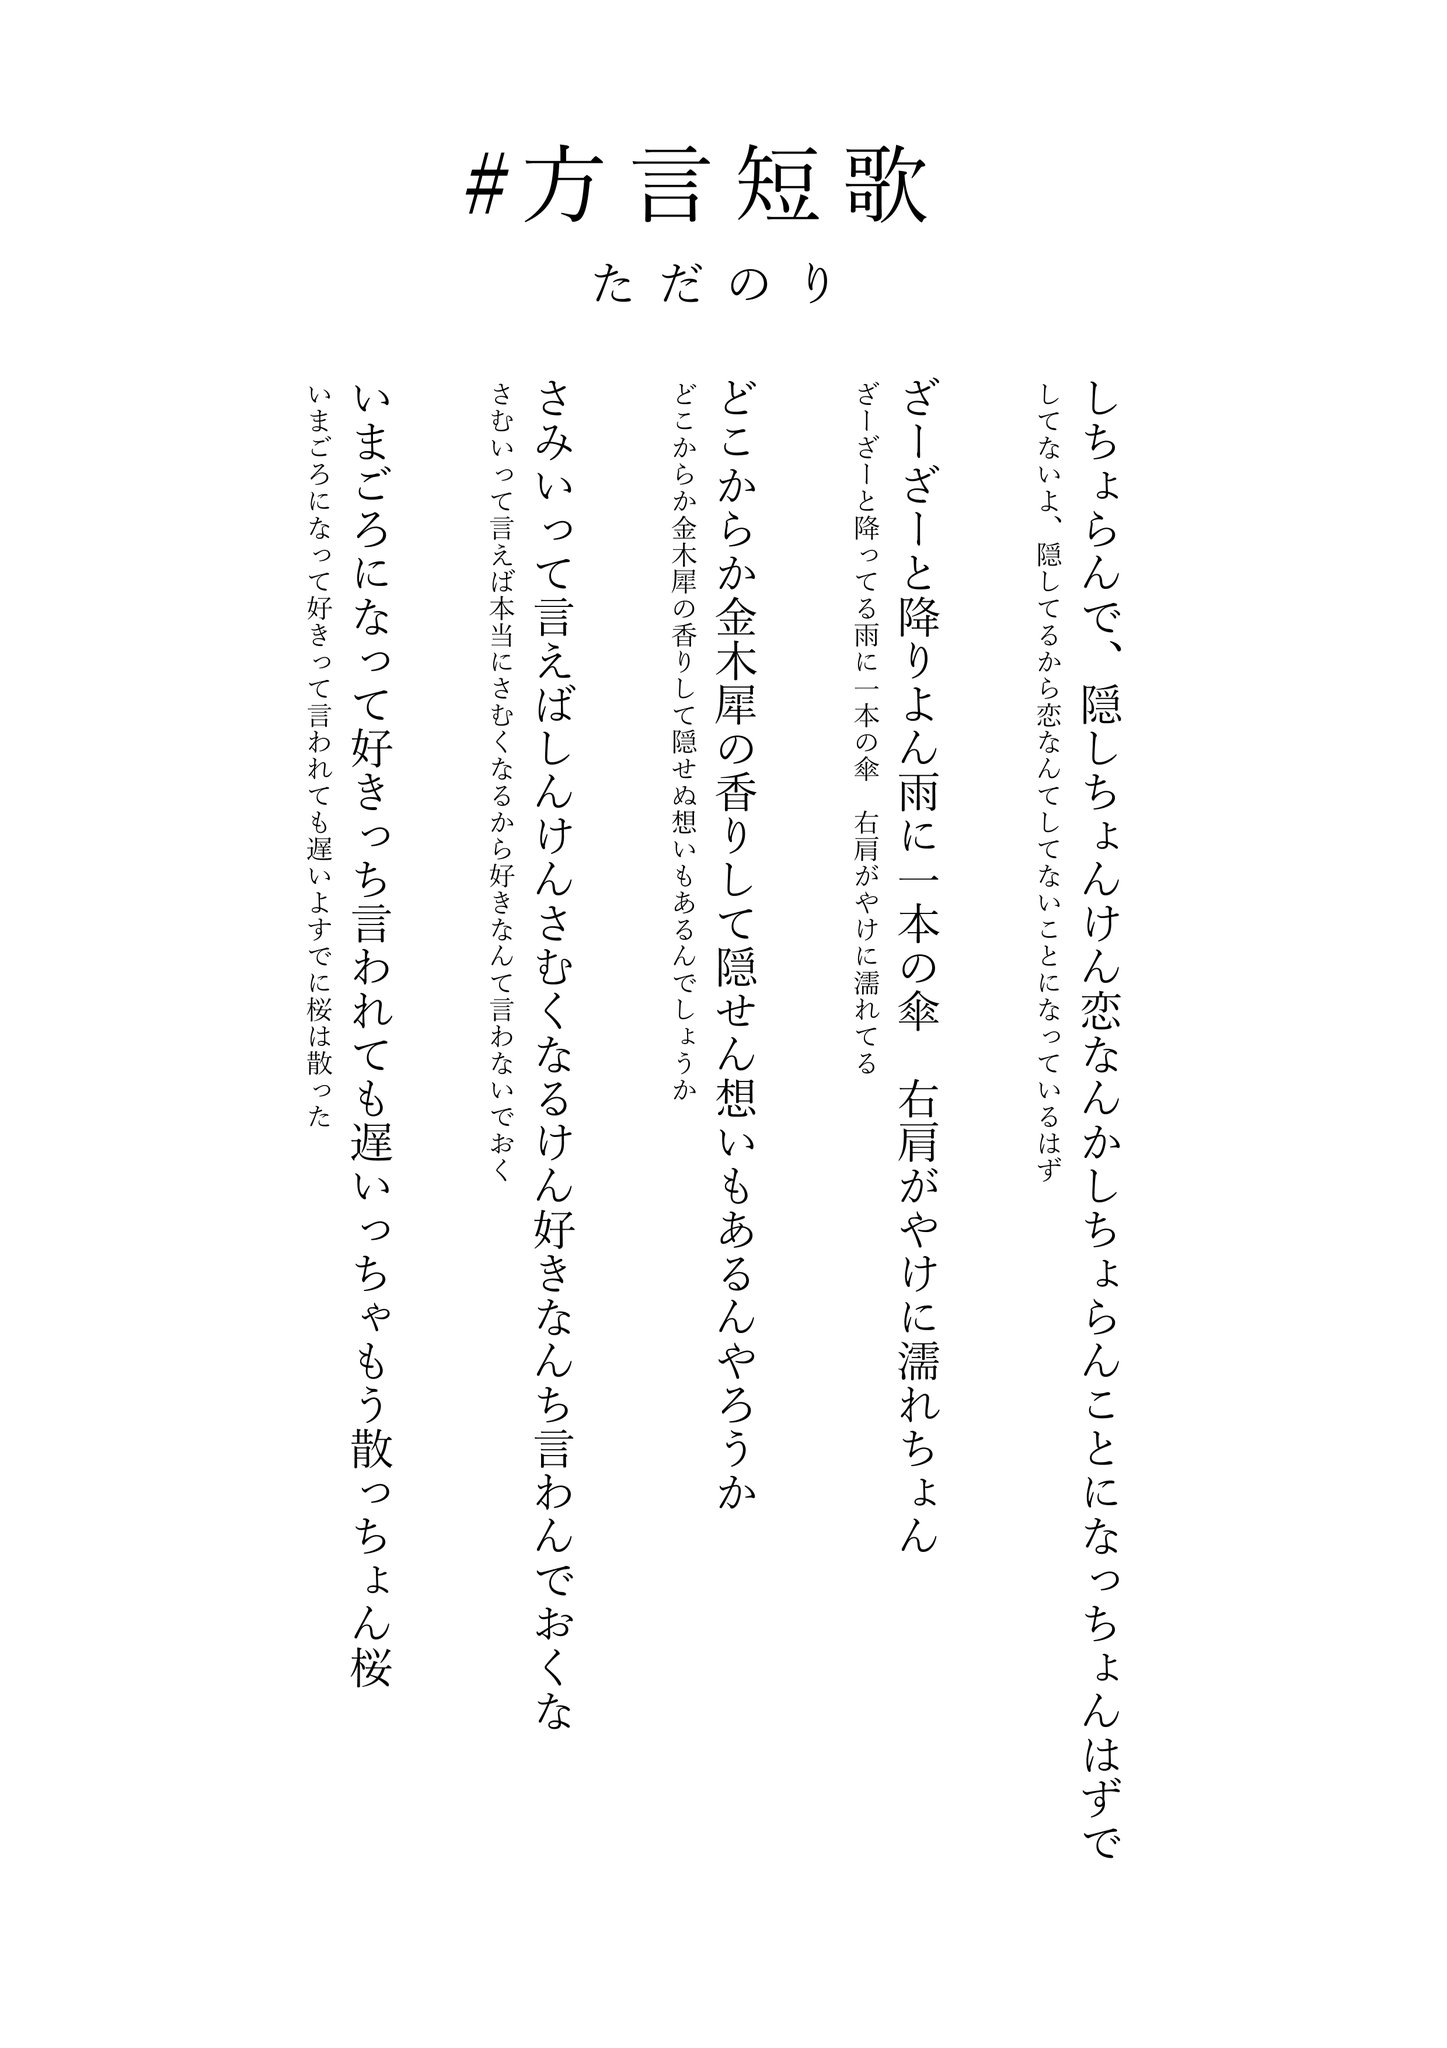 #方言短歌
ただのり
しちょらんで、隠しちょんけん恋なんかしちょらんことになっちょんはずで
してないよ、隠してるから恋なんてしてないことになっているはず
ざーざーと降りよん雨に一本の傘　右肩がやけに濡れちょん
ざーざーと降ってる雨に一本の傘　右肩がやけに濡れてる
どこからか金木犀の香りして隠せん想いもあるんやろうか
どこからか金木犀の香りして隠せぬ想いもあるんでしょうか
さみいって言えばしんけんさむくなるけん好きなんち言わんでおくな
さむいって言えば本当にさむくなるから好きなんて言わないでおく
いまごろになって好きっち言われても遅いっちゃもう散っちょん桜
いまごろになって好きって言われても遅いよすでに桜は散った